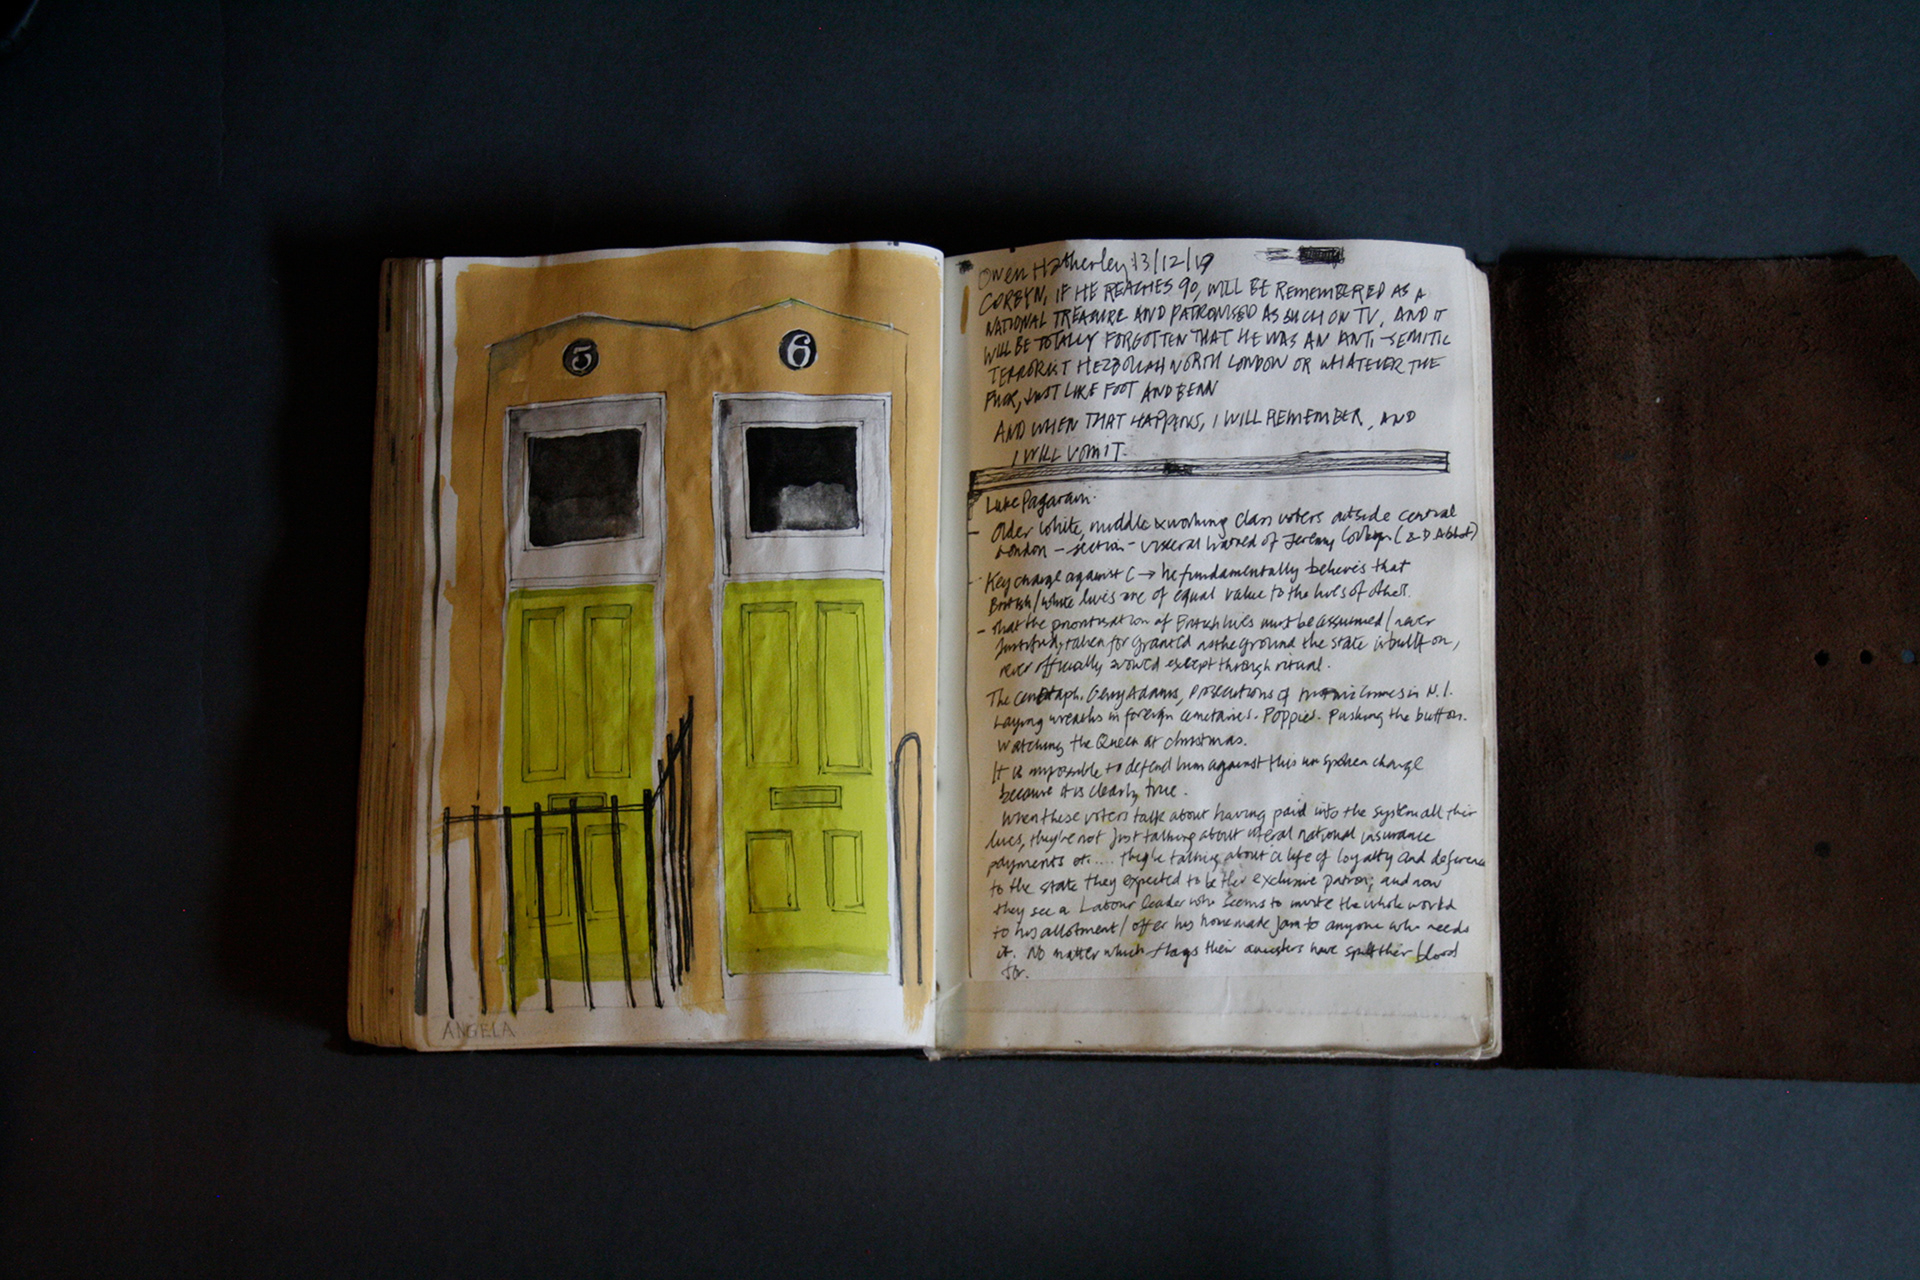 5
6
ANGELA
Owen Hatherley 13/12/19
CORBYN, IF HE REACHES 90, WILL BE REMEMBERED AS A
NATIONAL TREASURE AND PATRONISED AS SUCH ON TV, AND IT
WILL BE TOTALLY FORGOTTEN THAT HE WAS AN ANTI-SEMITIC
TERRORIST HEZBOLLAH NORTH LONDON OR WHATEVER THE
FUCK, JUST LIKE FOOT AND BENN
AND WHEN THAT HAPPENS, I WILL REMEMBER, AND
I WILL VOMIT.
Luke Pagarani.
- Older white, middle & working class voters outside central
London - section - visceral hatred of Jeremy Corbyn (& D Abbot)
- Key charge against C → he fundamentally believes that
British/white lives are of equal value to the lives of others.
- that the prioritisation of British lives must be assumed/never
justified, taken for granted as the ground the state is built on,
never officially avowed except through ritual.
The cenotaph. Gerry Adams, prosecutions of crimes in N.I.
Laying wreaths in foreign cemetaries. Poppies. Pushing the button.
Watching the Queen at christmas.
It is impossible to defend him against this unspoken charge
because it is clearly true.
When these voters talk about having paid into the system all their
lives, they're not just talking about literal national insurance
payments .... they're talking about a life of loyalty and deference
to the state they expected to be their exclusive patron; and now
they see a Labour leader who seems to invite the whole world
to his allotment/offer his homemade jam to anyone who needs
it. No matter which flags their ancestors have spilt their blood
for.